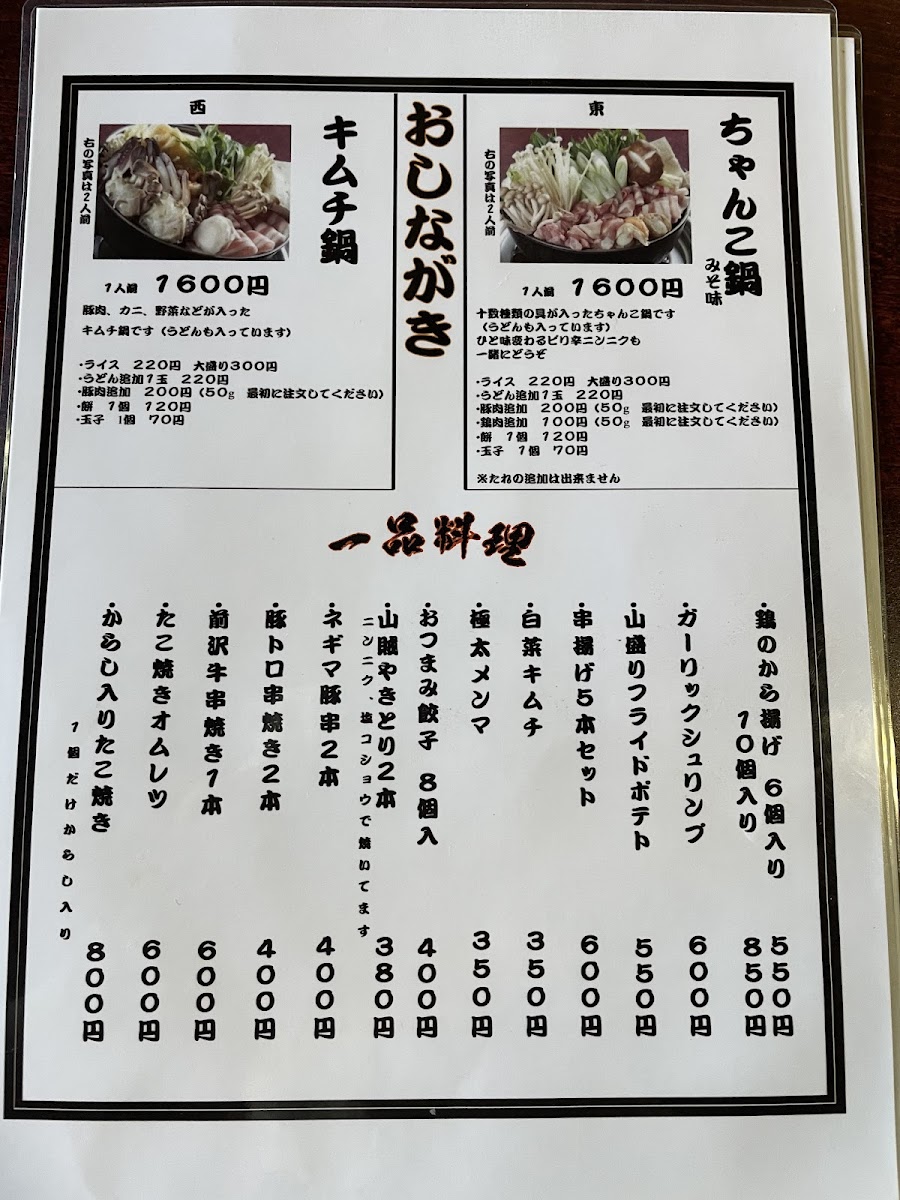 おしながき
東
ちゃんこ鍋
みそ味
右の写真は2人前
1人前 1600円
十数種類の具が入ったちゃんこ鍋です
（うどんも入っています）
ひと味変わるピリ辛ニンニクも
一緒にどうぞ
・ライス 220円 大盛り300円
・うどん追加1玉 220円
・豚肉追加 200円（50g 最初に注文してください）
・鶏肉追加 100円（50g 最初に注文してください）
・餅 1個 120円
・玉子 1個 70円
※たれの追加は出来ません
西
キムチ鍋
右の写真は2人前
1人前 1600円
豚肉、カニ、野菜などが入った
キムチ鍋です（うどんも入っています）
・ライス 220円 大盛り300円
・うどん追加1玉 220円
・豚肉追加 200円（50g 最初に注文してください）
・餅 1個 120円
・玉子 1個 70円
一品料理
・鶏のから揚げ 6個入り 550円
10個入り 850円
・ガーリックシュリンプ 600円
・山盛りフライドポテト 550円
・串揚げ5本セット 600円
・白菜キムチ 350円
・極太メンマ 350円
・おつまみ餃子 8個入 400円
・山賊やきとり2本 380円
ニンニク、塩コショウで焼いてます
・ネギマ豚串2本 400円
・豚トロ串焼き2本 400円
・前沢牛串焼き1本 600円
・たこ焼きオムレツ 600円
・からし入りたこ焼き 800円
1個だけからし入り